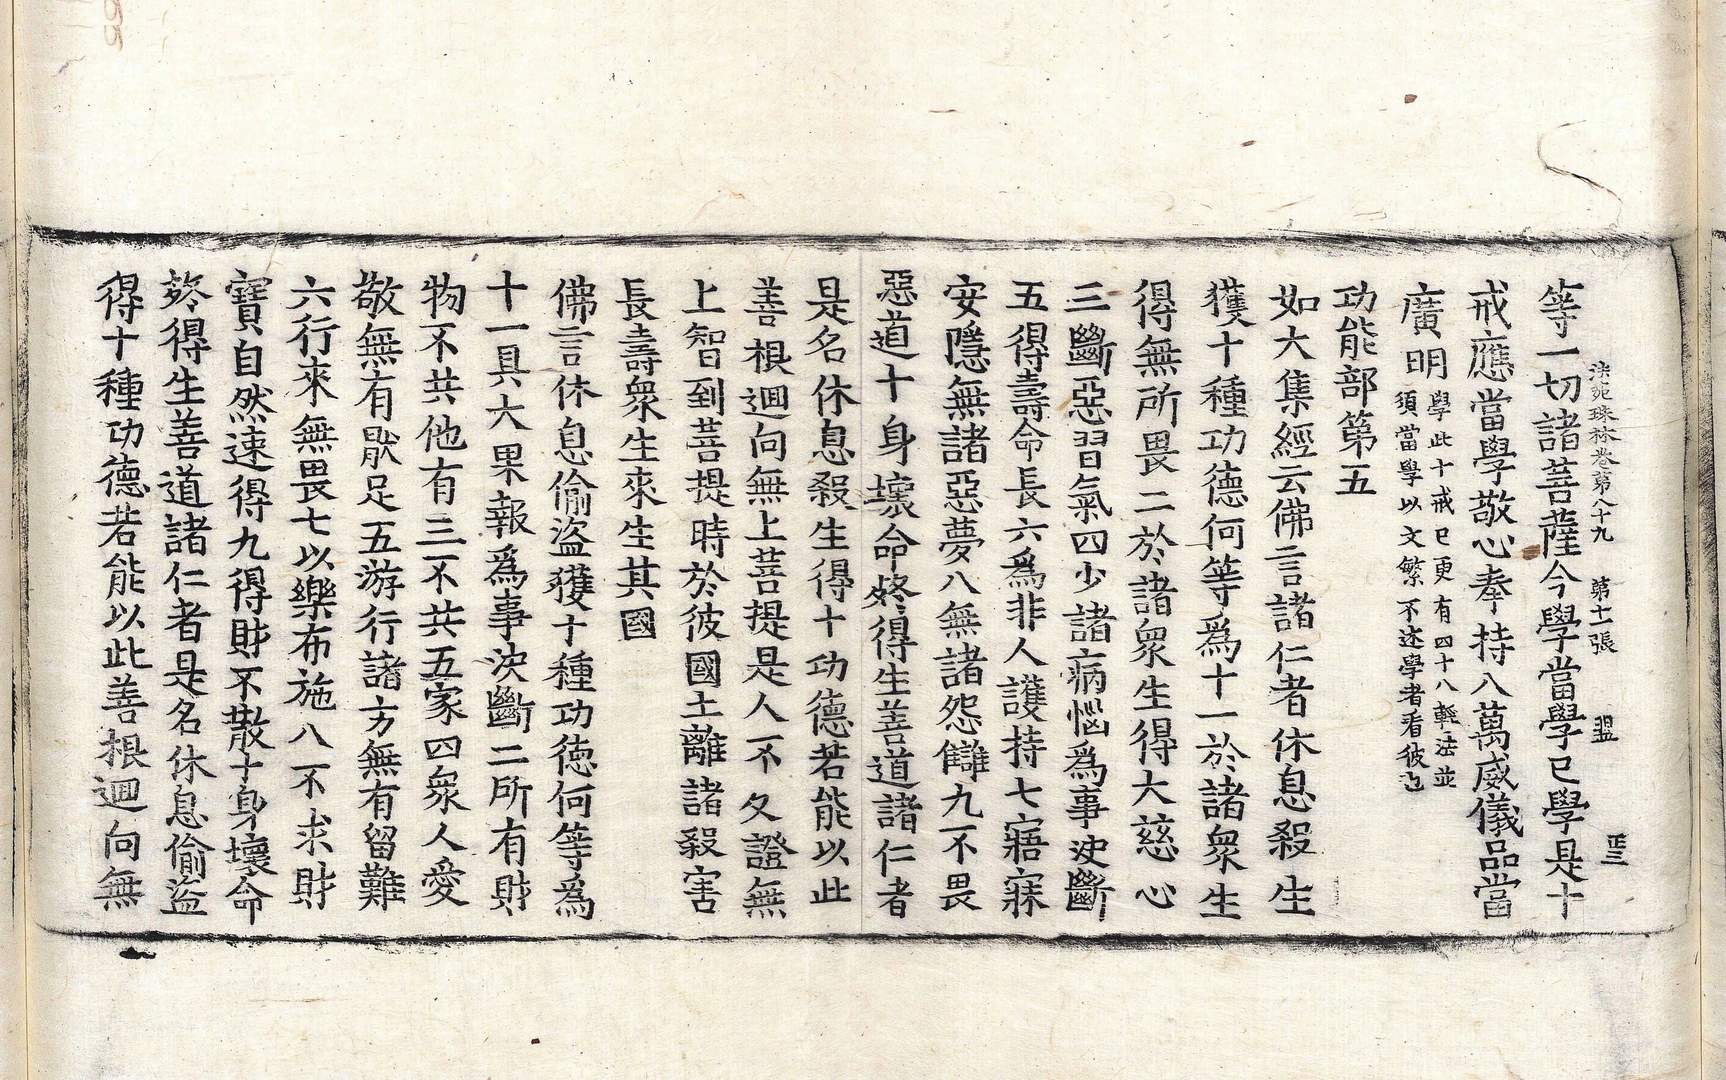 法苑珠林卷第八十九　第十一張　盟
等一切諸菩薩今學當學已學是十
戒應當學敬心奉持八萬威儀品當
廣明學此十戒已更有四十八輕法並
須當學以文繁不述學者看彼
功能部第五
如大集經云佛言諸仁者休息殺生
獲十種功德何等爲十一於諸衆生
得無所畏二於諸衆生得大慈心
三斷惡習氣四少諸病惱爲事決斷
五得壽命長六爲非人護持七寤寐
安隱無諸惡夢八無諸怨讎九不畏
惡道十身壞命終得生善道諸仁者
是名休息殺生得十功德若能以此
善根迴向無上菩提是人不久證無
上智到菩提時於彼國土離諸殺害
長壽衆生來生其國
佛言休息偷盜獲十種功德何等爲
十一具大果報爲事決斷二所有財
物不共他有三不共五家四衆人愛
敬無有猒足五游行諸方無有留難
六行來無畏七以樂布施八不求財
寶自然速得九得財不散十身壞命
終得生善道諸仁者是名休息偷盜
得十種功德若能以此善根迴向無